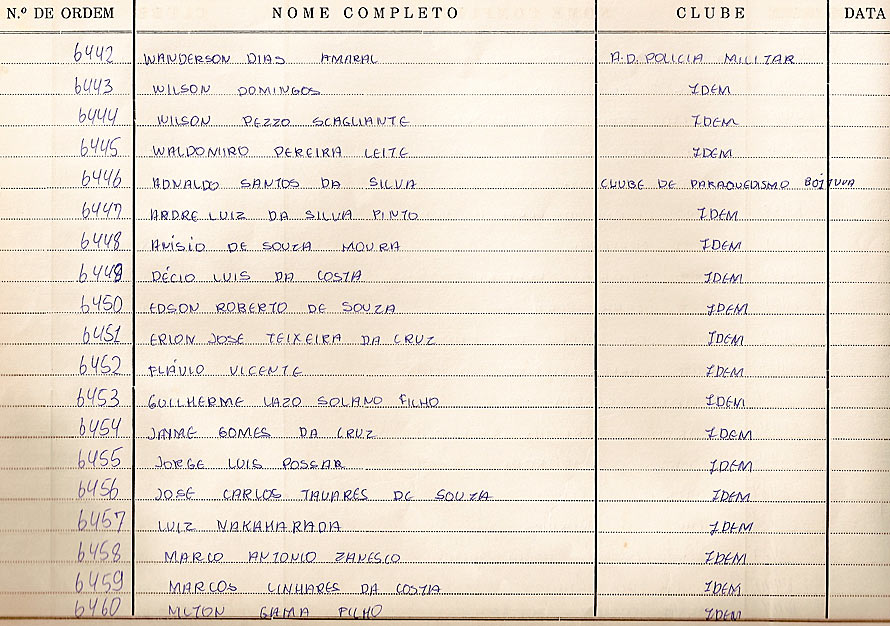 N.º DE ORDEM NOME COMPLETO CLUBE DATA
6442 WANDERSON DIAS AMARAL A.D. POLICIA MILITAR
6443 WILSON DOMINGOS IDEM
6444 WILSON PEZZO SCAGLIANTE IDEM
6445 WALDOMIRO PEREIRA LEITE IDEM
6446 RONALDO SANTOS DA SILVA CLUBE DE PARAQUEDISMO BOITUVA
6447 ARDRE LUIZ DA SILVA PINTO IDEM
6448 ANÍSIO DE SOUZA MOURA IDEM
6449 DÉCIO LUIS DA COSTA IDEM
6450 EDSON ROBERTO DE SOUZA IDEM
6451 ERION JOSE TEIXEIRA DA CRUZ IDEM
6452 FLÁVIO VICENTE IDEM
6453 GUILHERME LAZO SOLANO FILHO IDEM
6454 JAYME GOMES DA CRUZ IDEM
6455 JORGE LUIS POSSAR IDEM
6456 JOSE CARLOS TAVARES DE SOUZA IDEM
6457 LUIZ NAKAHARADA IDEM
6458 MARCO ANTONIO ZANESCO IDEM
6459 MARCOS LINHARES DA COSTA IDEM
6460 MILTON GAMA FILHO IDEM